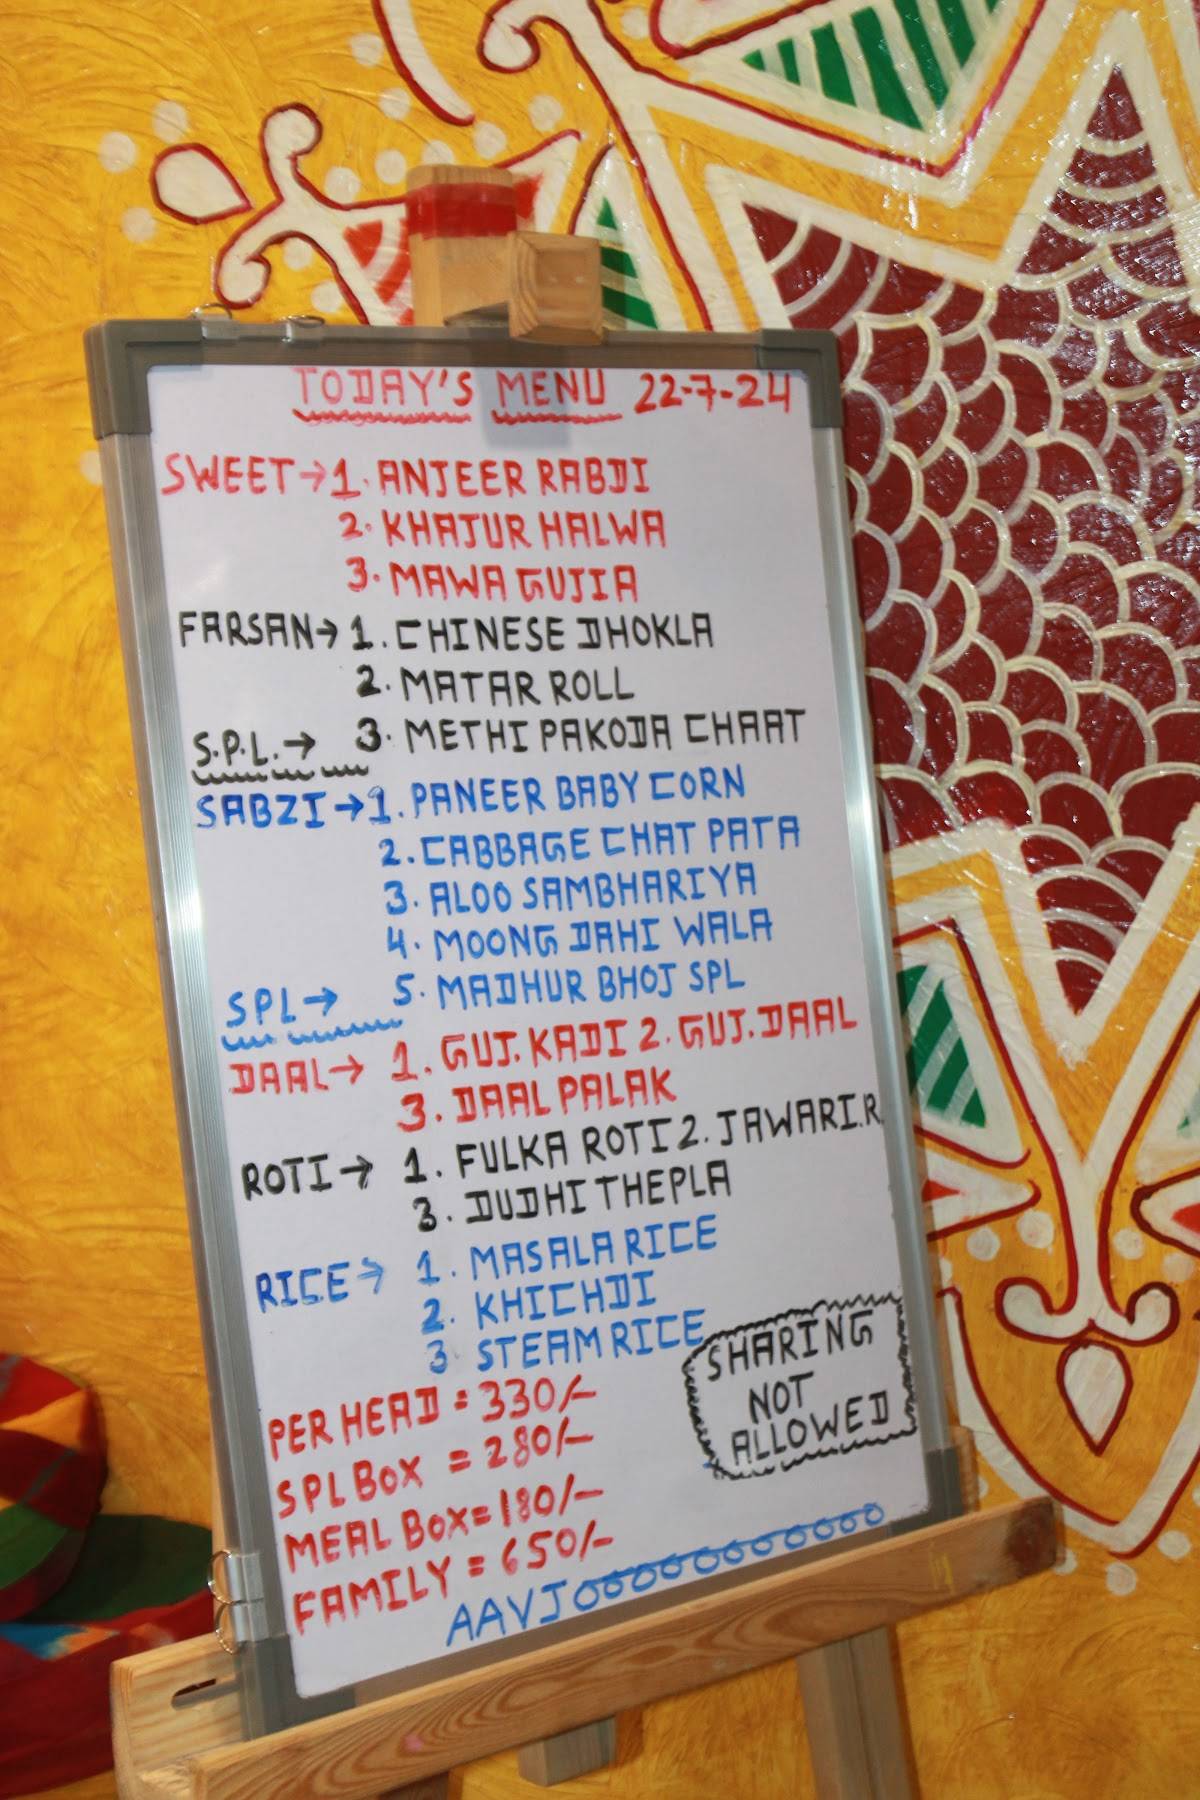 TODAY'S MENU 22-7-24
SWEET→1. ANJEER RABDI
2. KHAJUR HALWA
3. MAWA GUJIA
FARSAN→ 1. CHINESE DHOKLA
2. MATAR ROLL
S.P.L.→ 3. METHI PAKODA CHAAT
SABZI→1. PANEER BABY CORN
2. CABBAGE CHAT PATA
3. ALOO SAMBHARIYA
4. MOONG DAHI WALA
SPL→ 5. MADHUR BHOJ SPL
DAAL→ 1. GUJ. KADI 2. GUJ. DAAL
3. DAAL PALAK
ROTI→ 1. FULKA ROTI 2. JAWARI.R.
3. DUDHI THEPLA
RICE→ 1. MASALA RICE
2. KHICHDI
3 STEAM RICE
SHARING
NOT
ALLOWED
PER HEAD = 330/-
SPL BOX = 280/-
MEAL BOX = 180/-
FAMILY = 650/-
AAVJOOOOOOOOOOOO